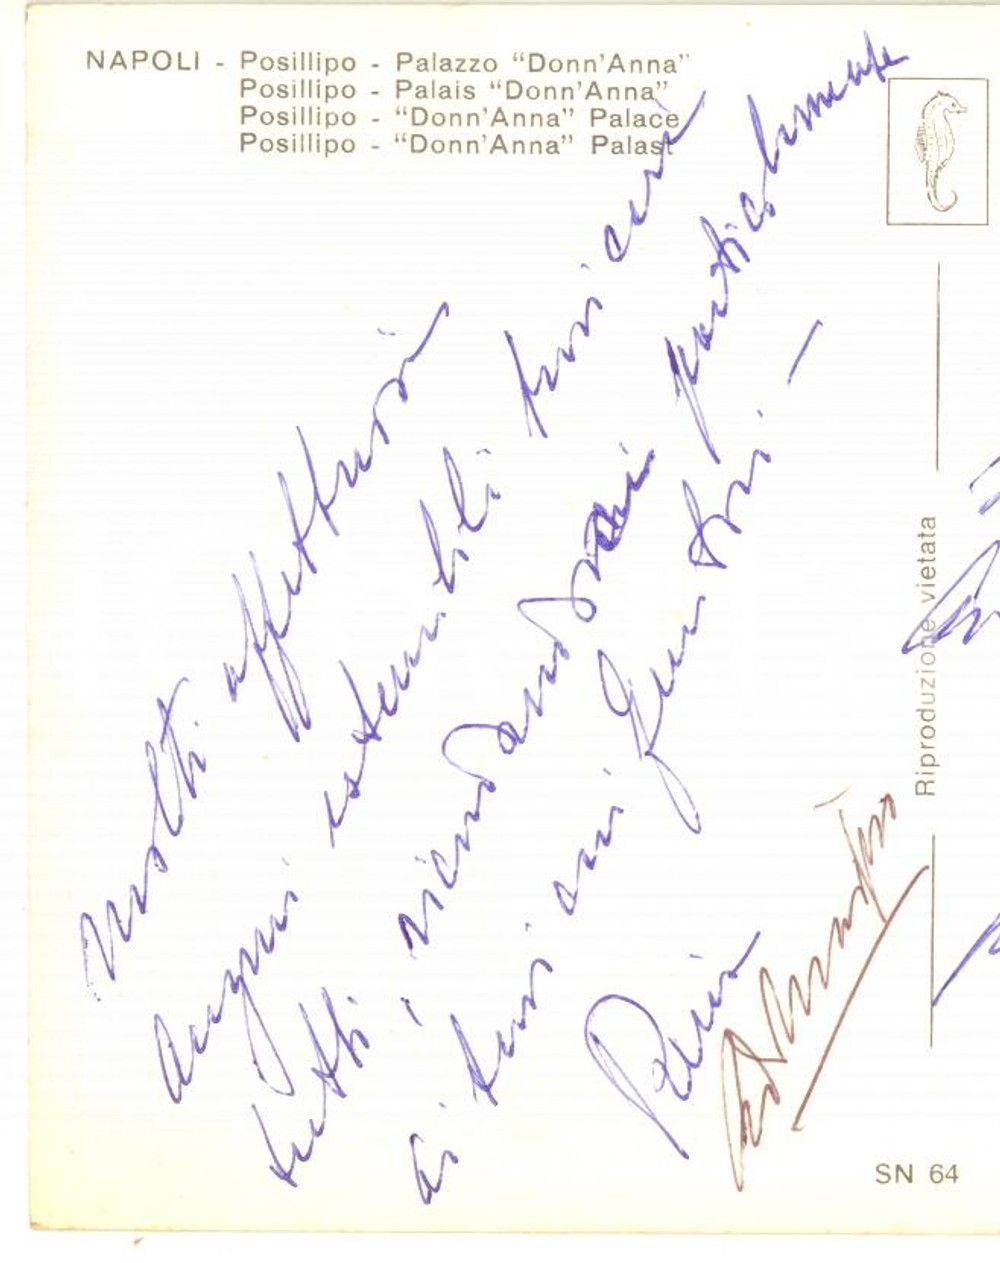 NAPOLI - Posillipo - Palazzo “Donn'Anna”
Posillipo - Palais “Donn'Anna”
Posillipo - “Donn'Anna” Palace
Posillipo - “Donn'Anna” Palast
molti affettuosi
auguri estensibili tuoi cari
tutti ricordandomi particolarmente
ai tuoi cari genitori -
Riproduzione vietata
SN 64